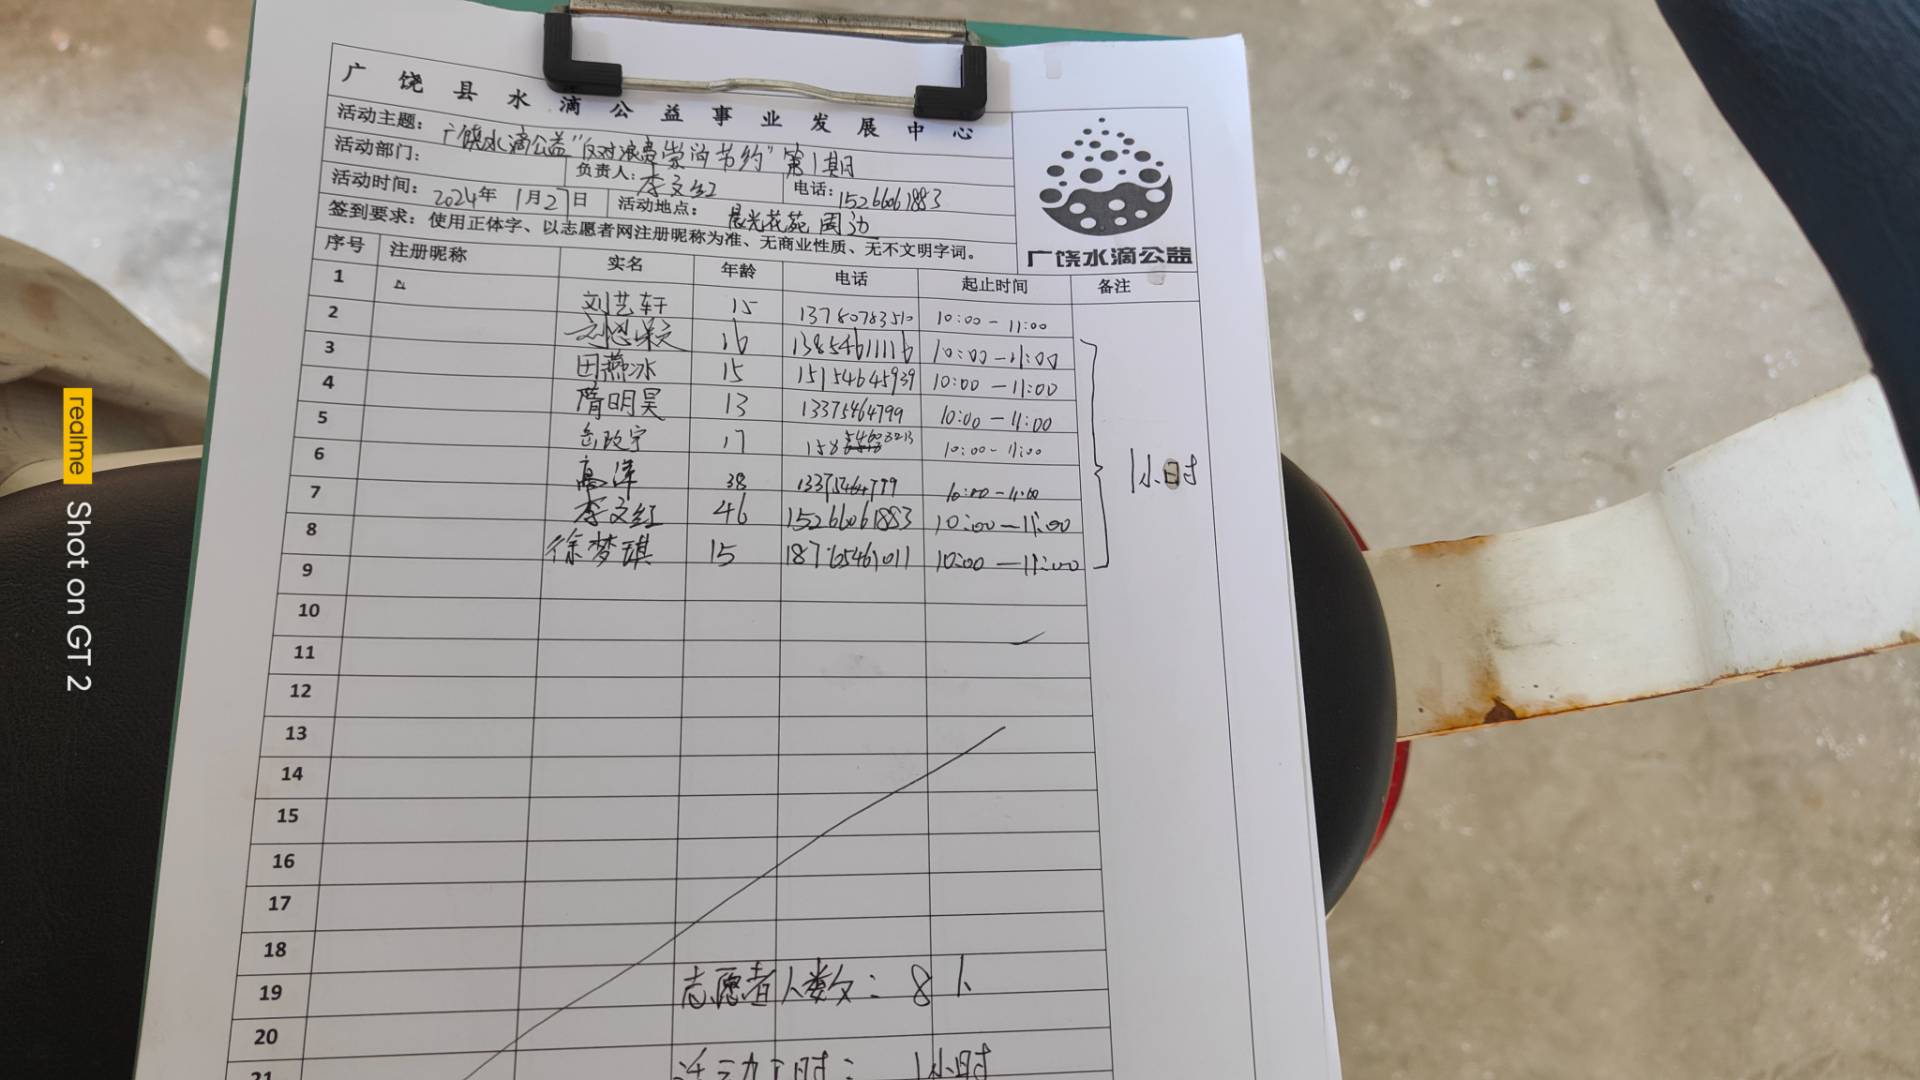 广饶县水滴公益事业发展中心
活动主题: 广饶水滴公益"反对浪费崇尚节约"第1期
活动部门: 负责人: 李文红 电话: 15266061883
活动时间: 2024年1月27日 活动地点: 晨光花苑周边
签到要求: 使用正体字、以志愿者网注册昵称为准、无商业性质、无不文明字词。
广饶水滴公益
序号 注册昵称 实名 年龄 电话 起止时间 备注
1 刘艺轩 15 13780783510 10:00-11:00
2 16 13854611116 10:00-11:00
3 田燕冰 15 15154645939 10:00-11:00
4 隋明昊 13 13375464799 10:00-11:00
5 岳政宇 17 10:00-11:00
6 高萍 38 13375464799 10:00-11:00
7 李文红 46 15266061883 10:00-11:00
8 徐梦琪 15 18765461011 10:00-11:00
1小时
9
10
11
12
13
14
15
16
17
18
19
20
21
志愿者人数: 8人
活动工时: 1小时
realme
Shot on GT 2